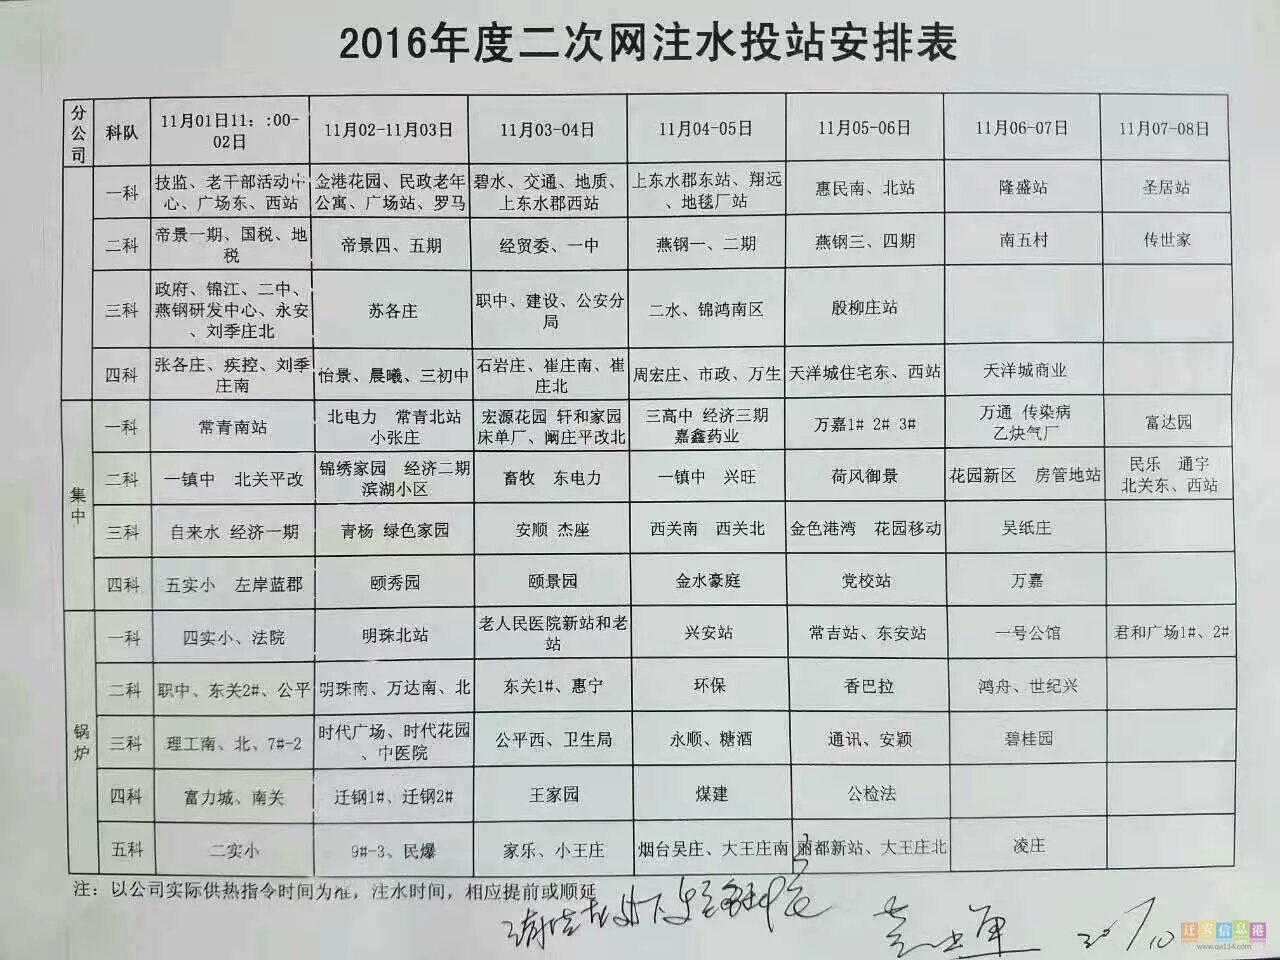 2016年度二次网注水投站安排表
分公司 科队 11月01日11：:00-02日 11月02-11月03日 11月03-04日 11月04-05日 11月05-06日 11月06-07日 11月07-08日
一科 技监、老干部活动中心、广场东、西站 金港花园、民政老年公寓、广场站、罗马 碧水、交通、地质、上东水郡西站 上东水郡东站、翔远、地毯厂站 惠民南、北站 隆盛站 圣居站
二科 帝景一期、国税、地税 帝景四、五期 经贸委、一中 燕钢一、二期 燕钢三、四期 南五村 传世家
三科 政府、锦江、二中、燕钢研发中心、永安、刘季庄北 苏各庄 职中、建设、公安分局 二水、锦鸿南区 殷柳庄站
四科 张各庄、疾控、刘季庄南 怡景、晨曦、三初中 石岩庄、崔庄南、崔庄北 周宏庄、市政、万生 天洋城住宅东、西站 天洋城商业
集中 一科 常青南站 北电力 常青北站 小张庄 宏源花园 轩和家园 床单厂、阚庄平改北 三高中 经济三期 嘉鑫药业 万嘉1# 2# 3# 万通 传染病 乙炔气厂 富达园
二科 一镇中 北关平改 锦绣家园 经济二期 滨湖小区 畜牧 东电力 一镇中 兴旺 荷风御景 花园新区 房管地站 民乐 通宇 北关东、西站
三科 自来水 经济一期 青杨 绿色家园 安顺 杰座 西关南 西关北 金色港湾 花园移动 吴纸庄
四科 五实小 左岸蓝郡 颐秀园 颐景园 金水豪庭 党校站 万嘉
锅炉 一科 四实小、法院 明珠北站 老人民医院新站和老站 兴安站 常吉站、东安站 一号公馆 君和广场1#、2#
二科 职中、东关2#、公平 明珠南、万达南、北 东关1#、惠宁 环保 香巴拉 鸿舟、世纪兴
三科 理工南、北、7#-2 时代广场、时代花园、中医院 公平西、卫生局 永顺、糖酒 通讯、安颖 碧桂园
四科 富力城、南关 迁钢1#、迁钢2# 王家园 煤建 公检法
五科 二实小 9#-3、民爆 家乐、小王庄 烟台吴庄、大王庄南 丽都新站、大王庄北 凌庄
注：以公司实际供热指令时间为准，注水时间，相应提前或顺延
迁安信息港
www.qa114.com